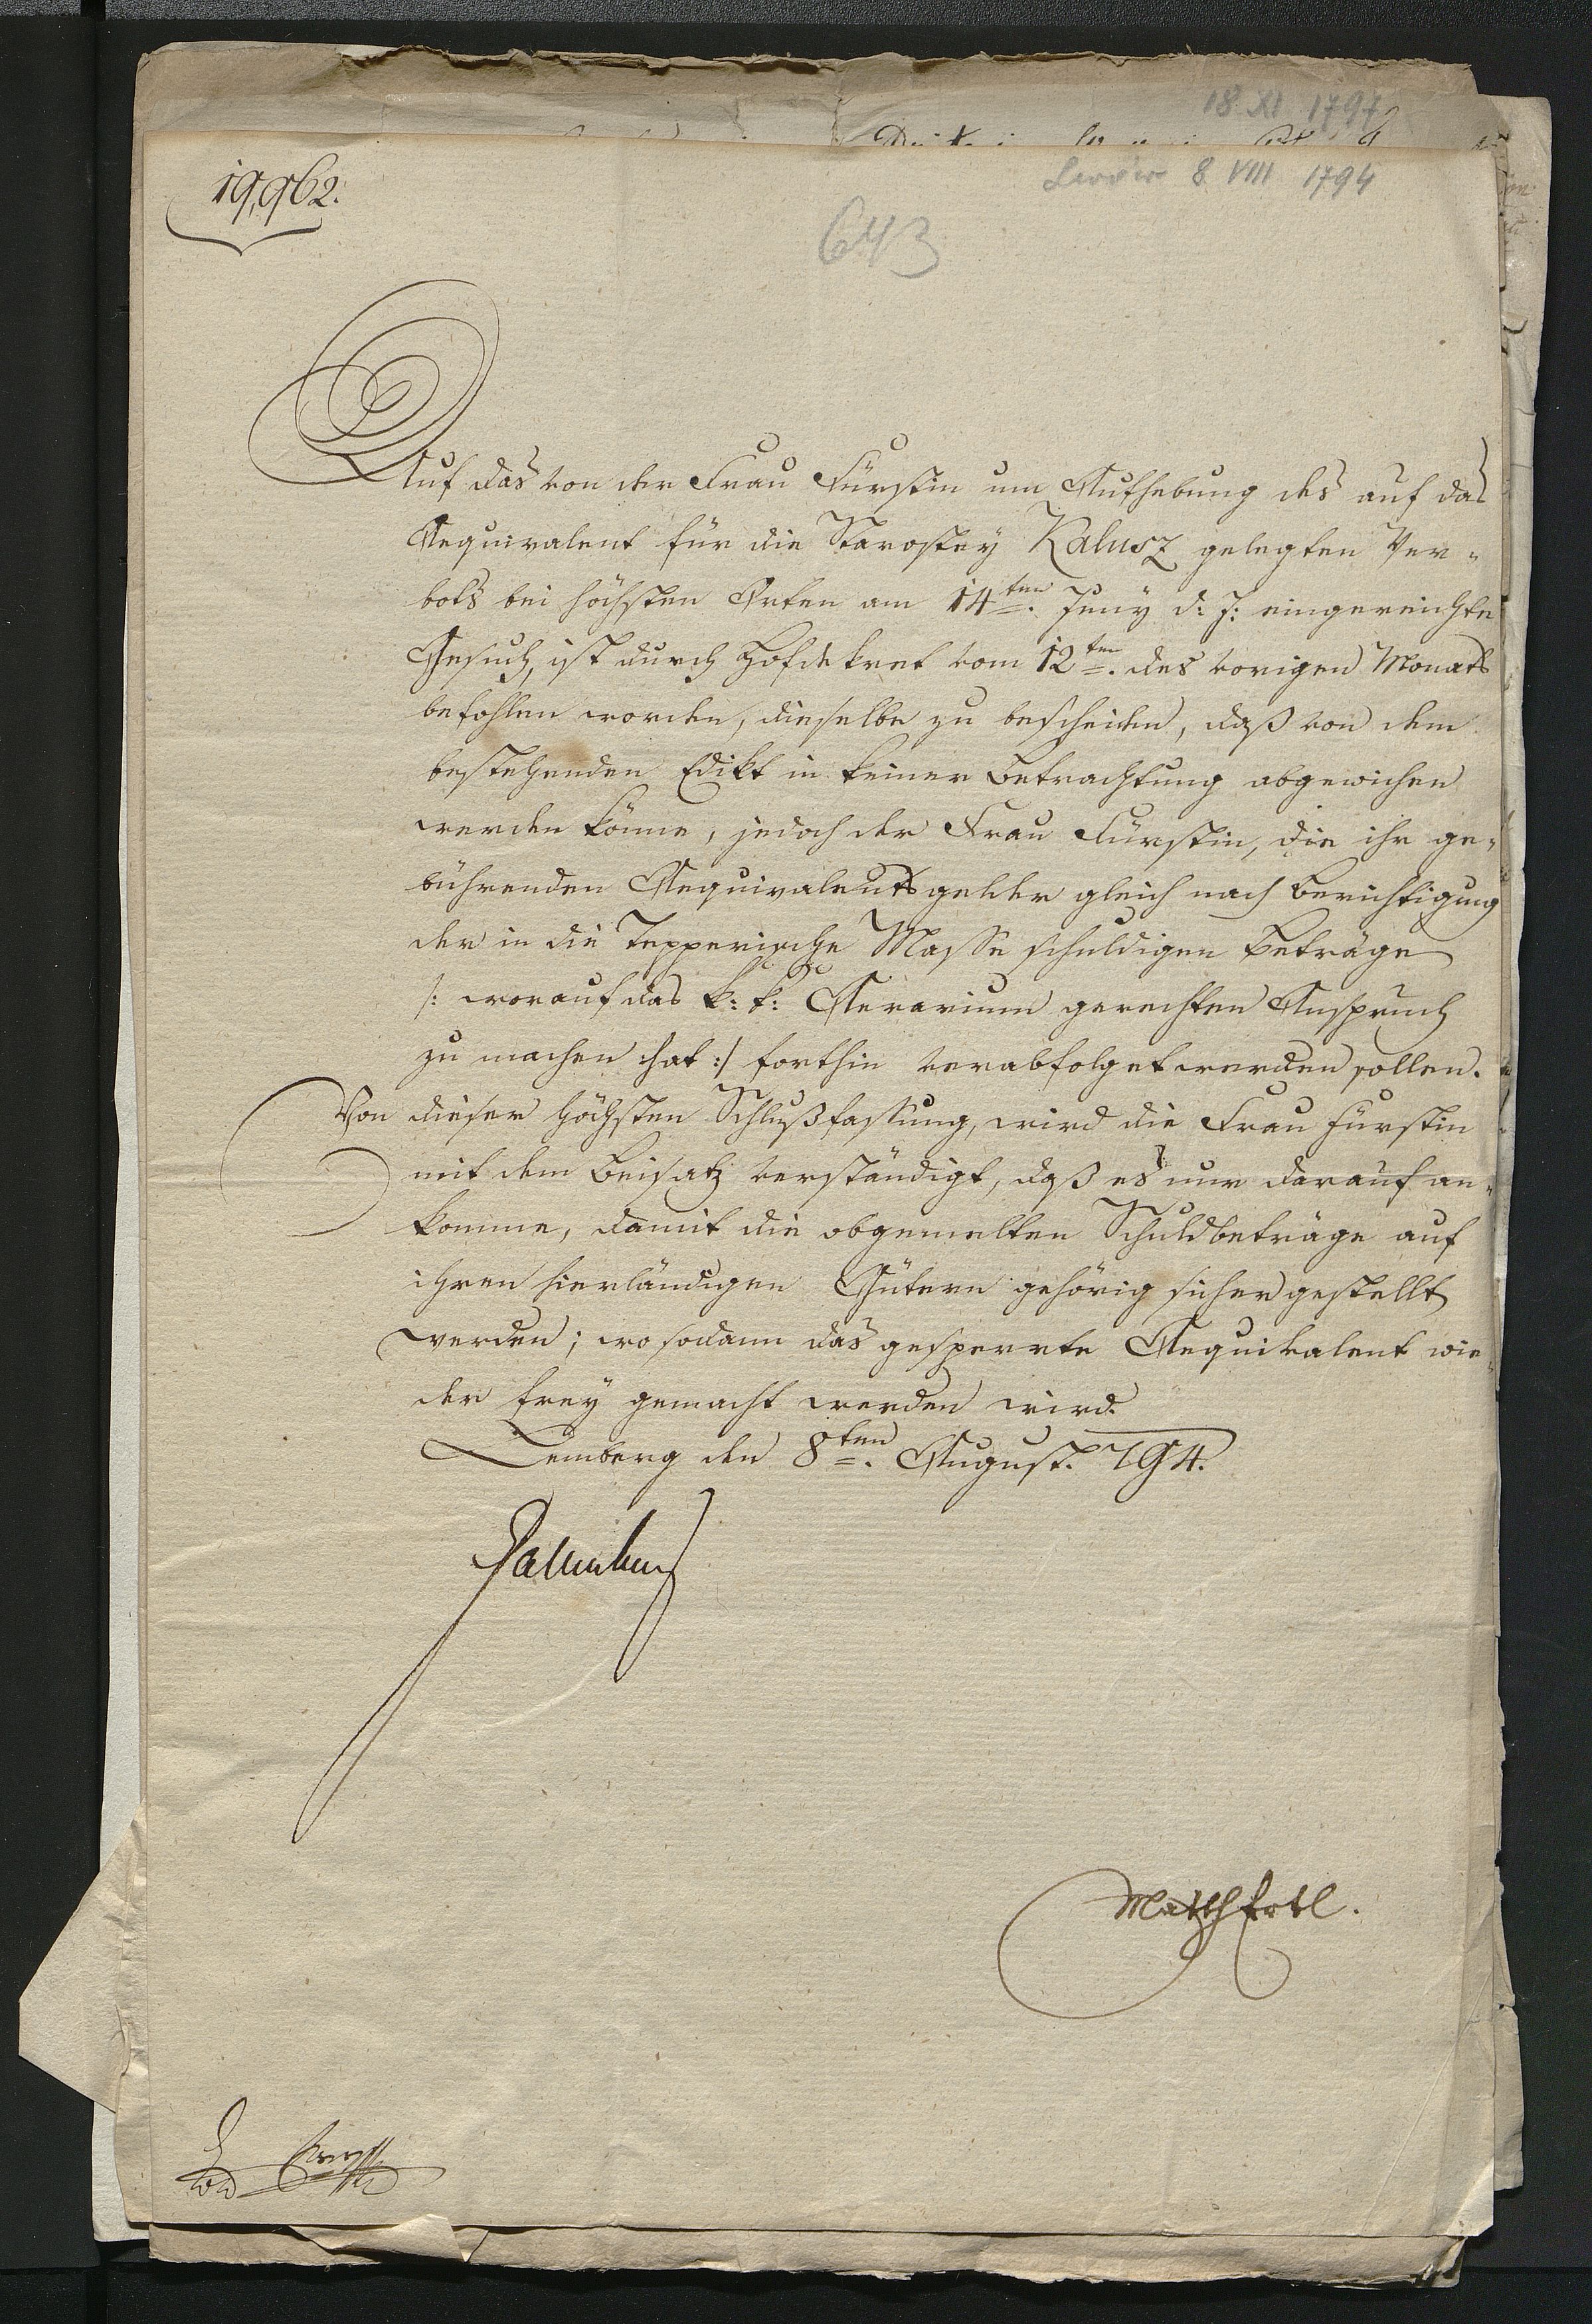 18 XI 1797
Lwów 8 VIII 1794
19,962.
643
Auf das von der Frau Fürstin um Aufhebung des auf das
Aequivalent für die Starostey Kalusz gelegten Ver-
bots bei höchsten Orten am 14ten Juny d: J: eingereichte
Gesuch, ist durch Hofdekret vom 12ten des vorigen Monats
befohlen worden, dieselbe zu bescheiden, daß von dem
bestehenden Edikt in keiner Betrachtung abgewichen
werden könne, jedoch der Frau Fürstin, die ihr ge-
bührenden Aequivalentsgelder gleich nach Berichtigung
der in die Tepperische Masse schuldigen Beträge
/: worauf das k: k: Aerarium gerechten Anspruch
zu machen hat :/ forthin verabfolget werden sollen.
Von dieser höchsten Schlußfassung, wird die Frau Fürstin
mit dem Beisatz verständigt, daß es nur darauf an-
komme, damit die obgemelten Schuldbeträge auf
ihren hierländigen Gütern gehörig sicher gestellt
werden; wo sodann das gesperrte Aequivalent wie-
der frey gemacht werden wird.
Lemberg den 8ten August. 794.
Gallenberg
Matth Ertl.